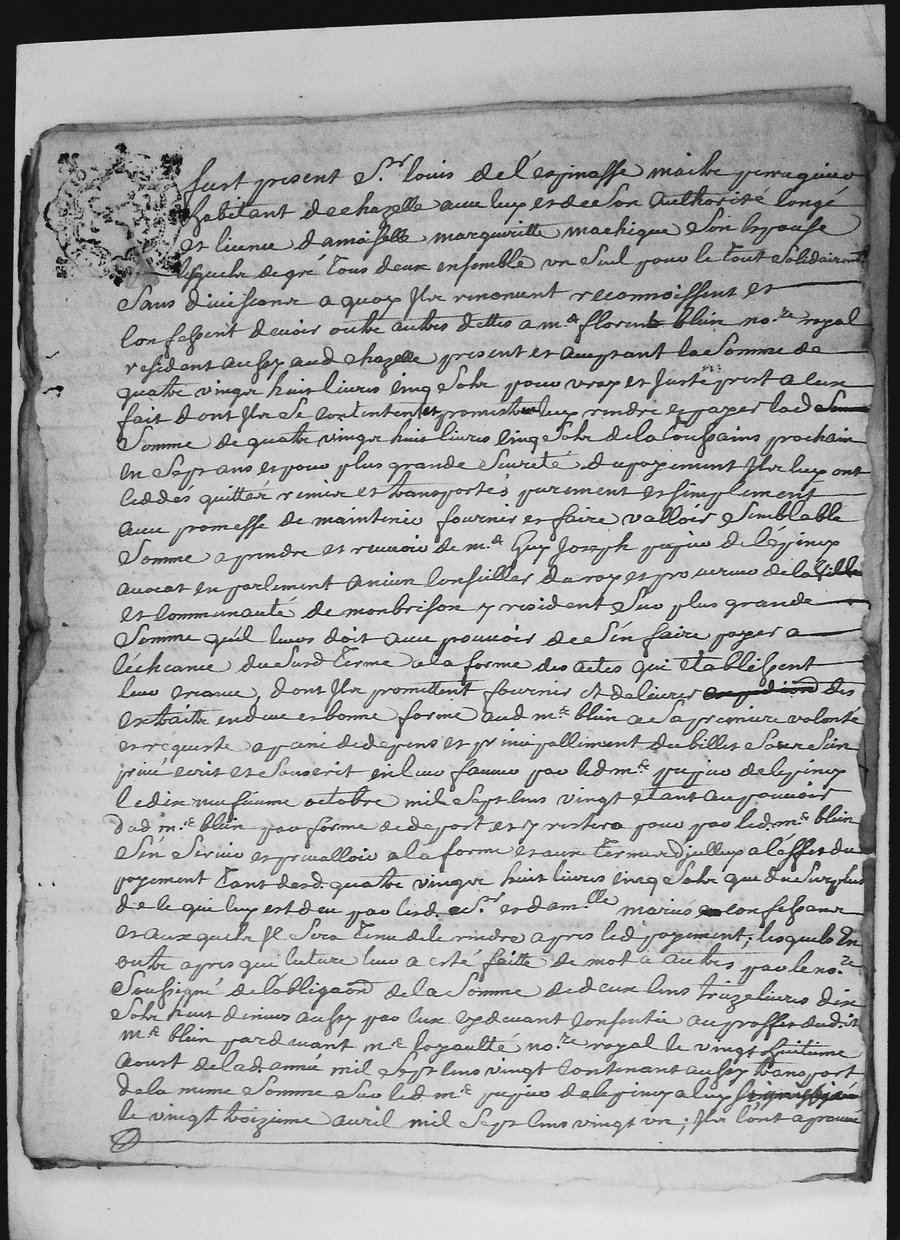 fust present S.r louis de l'espinasse maitre perruquier
habitant de chazelle avec luy et de son authorité congé
et licence damoiselle margueritte machique son epouse
lesquels de gré tous deux ensemble un seul pour le tout solidairem.t
sans division a quoy ils renoncent reconnoissent et
confessent devoir outre autres dettes a m.e florent blein no.re royal
resident aussy aud chazelle present et acceptant la somme de
quatre vingt huit livres cinq sols pour vray et juste prest a eux
fait dont ils se contentent et promettent luy rendre et payer lad
somme de quatre vingt huit livres cinq sols de la toussains prochain
en sept ans et pour plus grande sureté du payement ils luy ont
ceddés quittés remis et transportés purement et simplement
avec promesse de maintenir fournir et faire valloir semblable
somme a prendre et recevoir de m.e Guy Joseph pupier de l'épinoy
avocat en parlement ancien conseiller du roy et procureur de la ville
et communauté de monbrison y resident sur plus grande
somme qu'il leurs doit avec pouvoir de s'en faire payer a
l'echeance du susd terme a la forme des actes qui etablissent
leur creance, dont ils promettent fournir et delivrer des
extraits en due et bonne forme aud m.e blein a sa premiere volonté
et requiste a peine de depens et principallement du billet sous sein
privé ecrit et souscrit en leur faveur par led m.e pupier de lepinoy
le dix neufieme octobre mil sept cens vingt etant au pouvoir
dud m.e blein par forme de deport et y restera pour par led. m.e blein
s'en servir et prevalloir a la forme et aux termes d'jcelluy a l'effet du
payement tant desd. quatre vingt huit livres cinq sols que du surplus
de ce qui luy est deu par lesd. S.r et dam.lle mariés confessant
et auxquels il sera tenu de le rendre apres led payement; lesquels en
outre apres que lecture leur a esté faitte de mot a autres par le no.re
soussigné de l'obligaon de la somme de deux cens treize livres dix
sols huit deniers aussy par eux cy devant consentie au proffit dudit
m.e blein pardevant m.e loyaulté no.re royal le vingt huitieme
aoust de lad année mil sept cens vingt contenant aussy transport
de la meme somme sur led m.e pupier de lepinoy a luy
le vingt troizieme avril mil sept cens vingt un; ils l'ont aprouvé